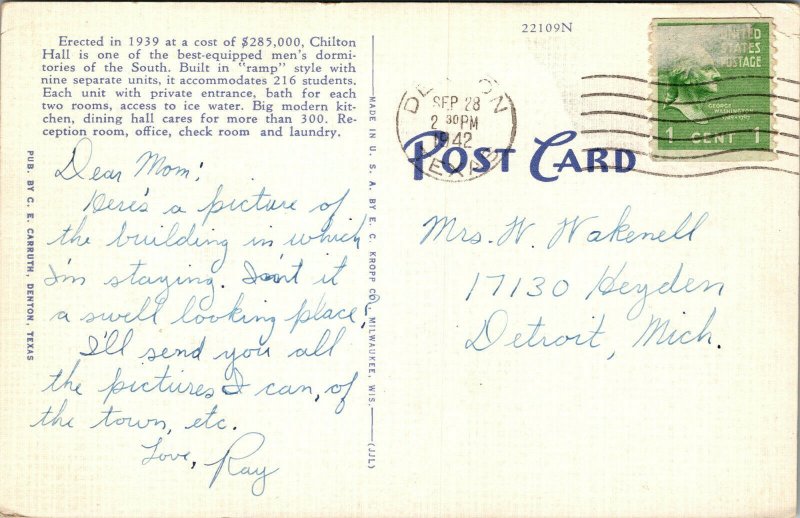 22109N
Erected in 1939 at a cost of $285,000, Chilton
Hall is one of the best-equipped men's dormi-
tories of the South. Built in "ramp" style with
nine separate units, it accommodates 216 students.
Each unit with private entrance, bath for each
two rooms, access to ice water. Big modern kit-
chen, dining hall cares for more than 300. Re-
ception room, office, check room and laundry.
PUB. BY C. E. CARRUTH, DENTON, TEXAS
Dear Mom:
Here's a picture of
the building in which
I'm staying. Isn't it
a swell looking place?
I'll send you all
the pictures I can, of
the town, etc.
Love, Ray
MADE IN U. S. A. BY E. C. KROPP CO., MILWAUKEE, WIS.
(JJL)
DENTON
SEP 28
2 30 PM
1942
TEXAS
POST CARD
UNITED
STATES
POSTAGE
GEORGE
WASHINGTON
1789-1797
1 CENT 1
Mrs. W. Wakenell
17130 Heyden
Detroit, Mich.